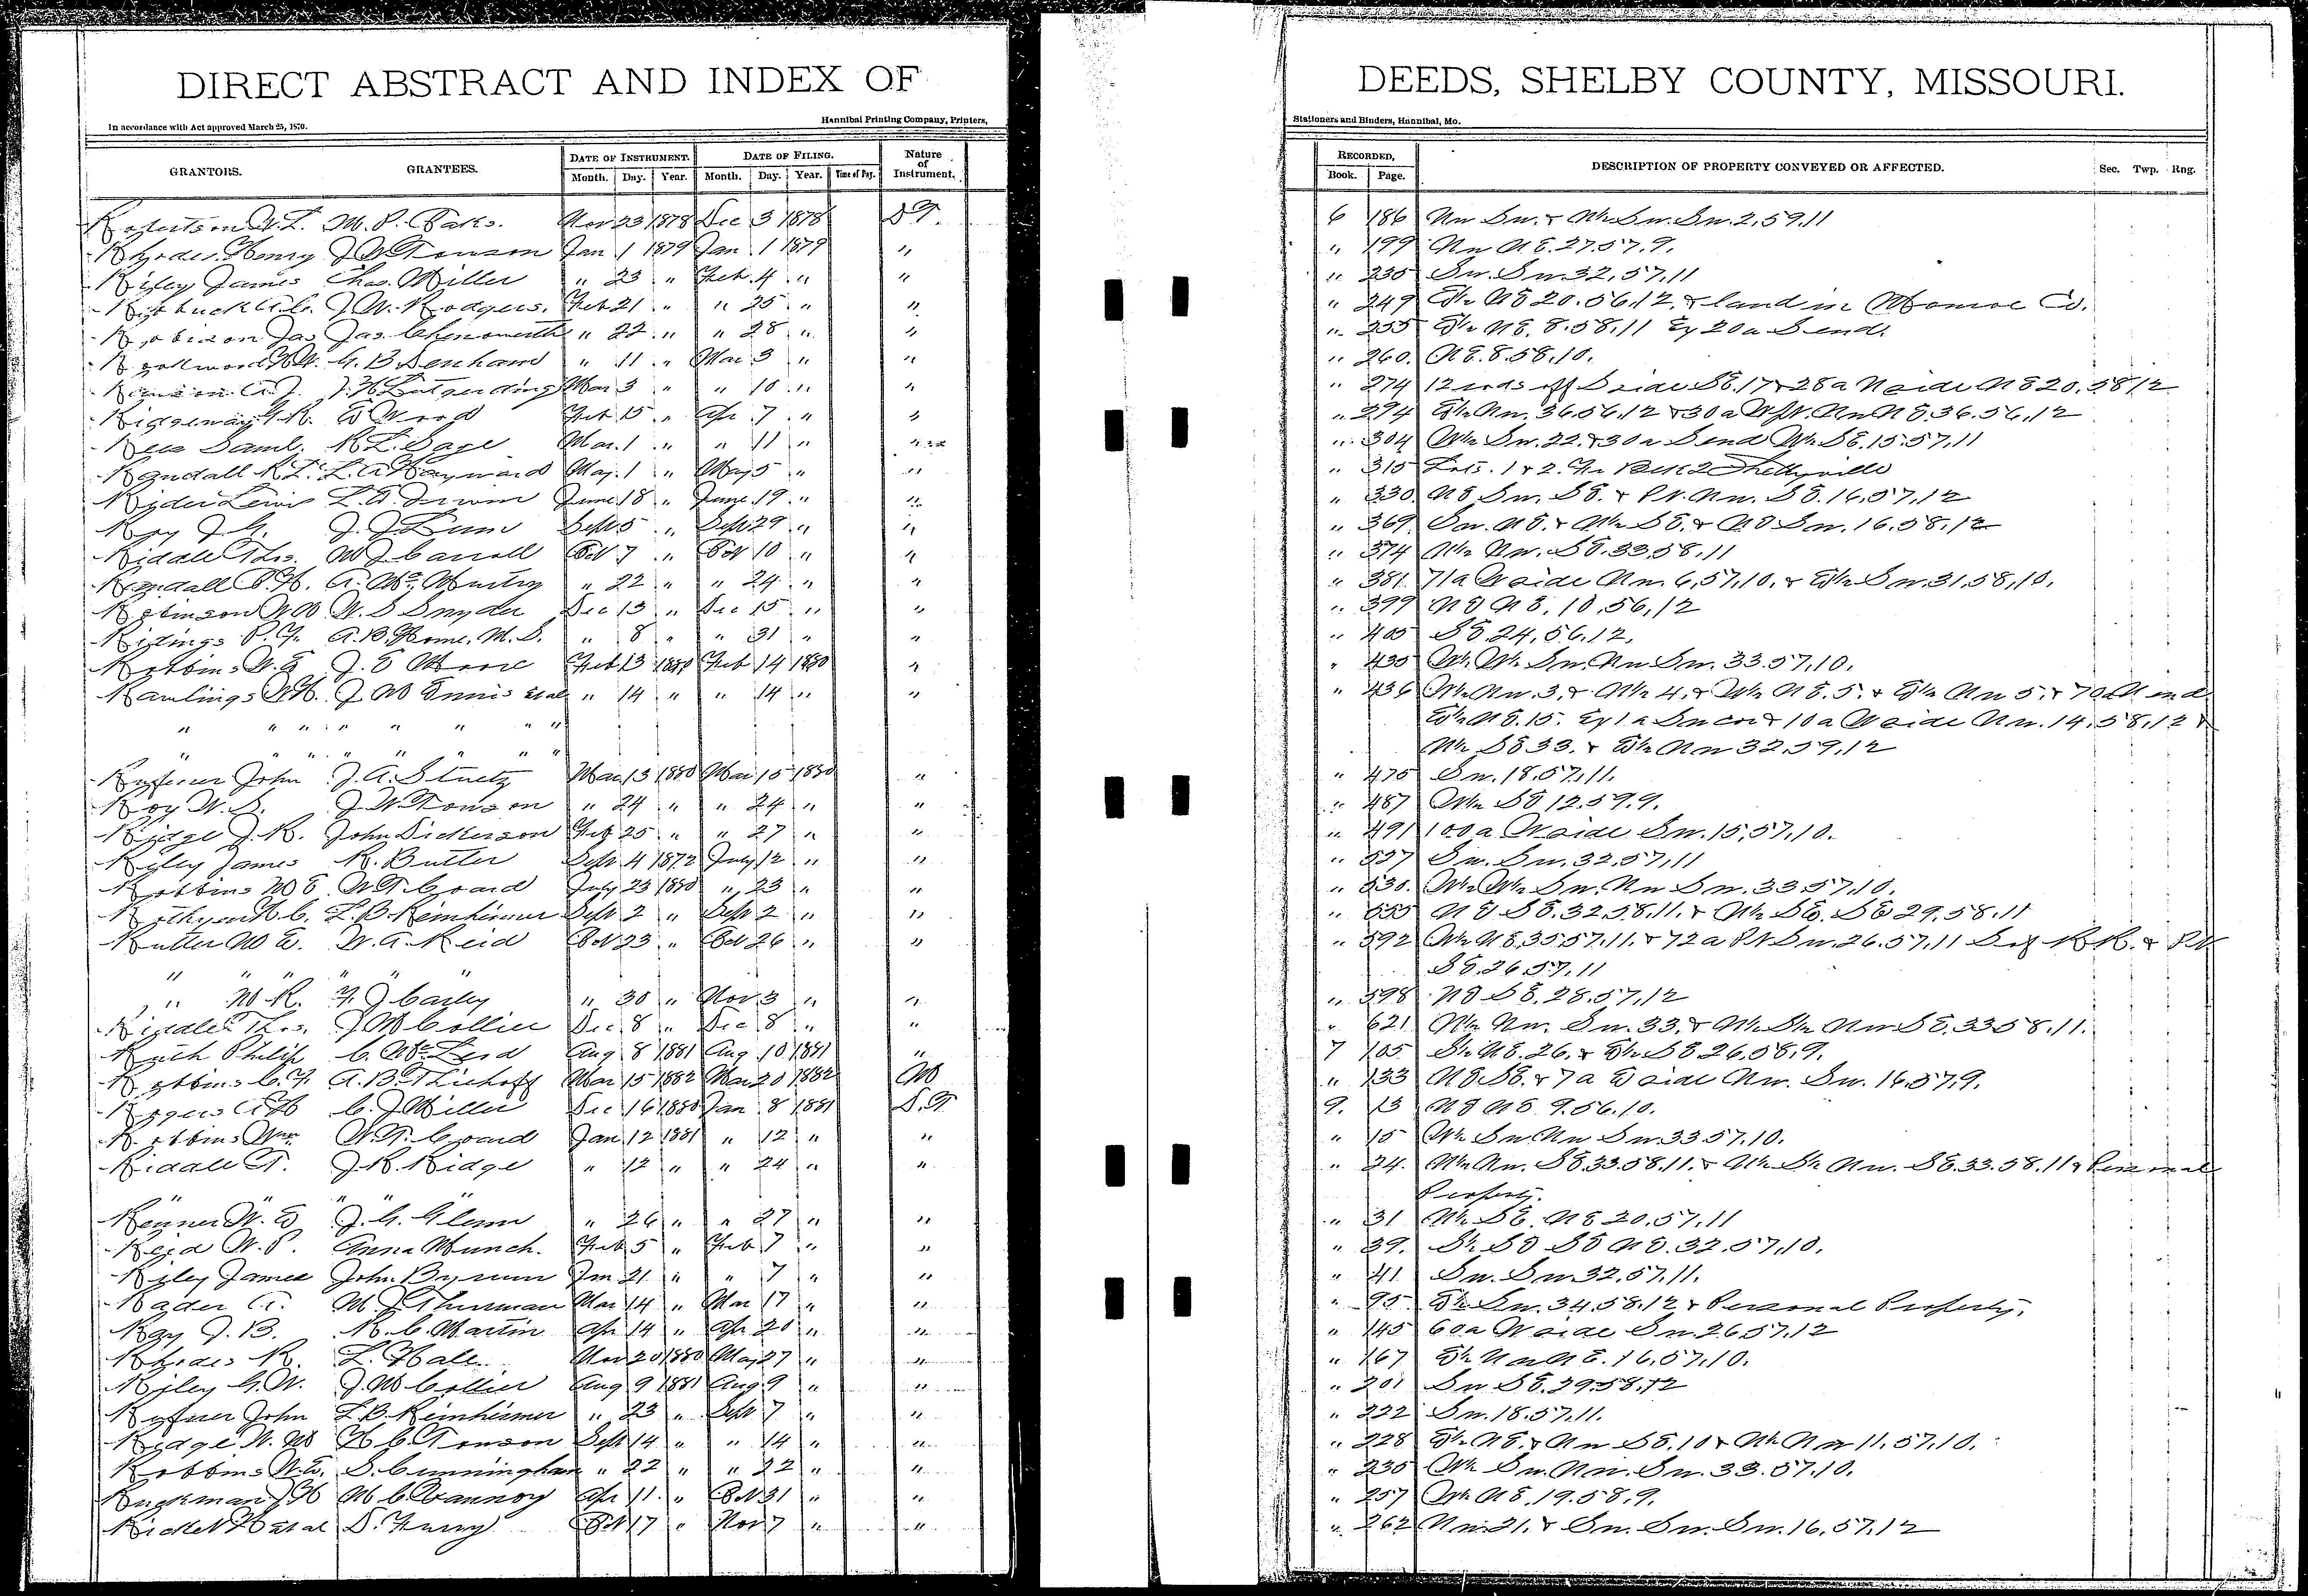 DIRECT ABSTRACT AND INDEX OF
In accordance with Act approved March 25, 1870.
Hannibal Printing Company, Printers,
GRANTORS. GRANTEES. DATE OF INSTRUMENT. DATE OF FILING. Nature of Instrument.
Month. Day. Year. Month. Day. Year. Time of Day.
Robertson W.L. M. P. Nov 23 1878 Dec 3 1878 D T.
Rhodes Henry J W Towson Jan 1 1879 Jan 1 1879 "
Riley James Chas. Miller " 23 " Feb. 4 " "
J. W. Rodgers. Feb 21 " " 25 " "
Robison Jas Jas. Chenoweth " 22 " " 28 " "
G. B Denham " 11 " Mar 3 " "
Mar 3 " " 10 " "
Ridgeway G.R. E Wood Feb 15 " Apr 7 " "
Saml. R L. Sage Mar. 1 " " 11 " "
Randall R L. L. A Hayward May. 1 " May 5 " "
Rider Lewis L. A. Irwin June 18 " June 19 " "
Roy J. G. J. J Sept 5 " Sept 29 " "
Riddle Thos. W J Carroll Oct 7 " Oct 10 " "
Randall A. Mc. Murtry " 22 " " 24 " "
Robinson W W W. S Snyder Dec 13 " Dec 15 " "
Ridings P. F. A. B. Home. M. S. " 8 " " 31 " "
Robbins W. E J. E Moore Feb 13 1880 Feb 14 1880 "
Rawlings J W Ennis et al " 14 " " 14 " "
" " " " " " " "
" " " " " " " "
John J. A. Stuetz Mar 13 1880 Mar 15 1880 "
Roy W. S. J. W. Towson " 24 " " 24 " "
Ridge J. R. John Dickerson Feb 25 " " 27 " "
Riley James R. Butler Sept 4 1872 July 12 " "
Robbins W E W. T. Coard July 23 1880 " 23 " "
L. B. Reinheimer Sept 2 " Sept 2 " "
Rutter W E. W. A. Reid Oct 23 " Oct 26 " "
" " " " " "
" W R. F. J Carley " 30 " Nov 3 " "
Riddle Thos. J W Collier Dec 8 " Dec 8 " "
Ruth Philip C. Mc. Leod Aug 8 1881 Aug 10 1881 "
Robbins C. F. A. B. Thiehoff Mar 15 1882 Mar 20 1882 M
Rogers A H C. J Miller Dec 16 1880 Jan 8 1881 D. T
Robbins Wm W. T. Coard Jan 12 1881 " 12 " "
Riddle T. J. R. Ridge " 12 " " 24 " "
" " " " "
Renner W. E J. G. Glenn " 26 " " 27 " "
Reid W. P. Anna Munch. Feb 5 " Feb 7 " "
Riley James John Bynum Jan 21 " " 7 " "
Rader A. M. J. Thurman Mar 14 " Mar 17 " "
Ray J. B. R. C. Martin Apr 14 " Apr 20 " "
Rhodes R. L. Hale Nov 20 1880 May 27 " "
Riley G. W. J. W Collier Aug 9 1881 Aug 9 " "
John L. B. Reinheimer " 23 " Sept 7 " "
Ridge W. W H C Towson Sept 14 " " 14 " "
Robbins W. E. S. Cunningham " 22 " " 22 " "
Ruckman J H M C Vannoy Apr 11. " Oct 31 " "
Oct 17 " Nov 7 " "
DEEDS, SHELBY COUNTY, MISSOURI.
Stationers and Binders, Hannibal, Mo.
RECORDED, DESCRIPTION OF PROPERTY CONVEYED OR AFFECTED. Sec. Twp. Rng.
Book. Page.
6 186 Nw Sw. & N½ Sw. Sw. 2, 59, 11
" 199 Nw N E. 27. 57. 9.
" 235 Sw. Sw 32, 57, 11
" 249 E½ N E 20. 56, 12, & land in Monroe Co.
" 255 E½ N E. 8. 58, 11 Ex 20 a S end.
" 260. N E. 8. 58, 10.
" 274 12 rods off S side S E. 17 & 28 a N side N E 20, 58 12
" 294 E½ Nw. 36. 56, 12 & 30 a Nw N E. 36. 56, 12
" 304 W½ Sw. 22. & 30 a S end W½ S E. 15. 57, 11
" 315 Lots. 1 & 2. Blk 2 Shelbyville
" 330. N E Sw. S E. & Pt. Nw. S E. 16, 57, 12
" 369 Sw. N E. & W½ S E. & N E Sw. 16. 58, 12
" 374 N½ Nw. S E. 33, 58, 11
" 381 71 a W side Nw. 6, 57, 10, & E½ Sw. 31, 58, 10,
" 399 N E N E. 10, 56, 12
" 405 S E. 24, 56, 12,
" 435 W½ W½ Sw. Nw Sw. 33. 57, 10.
" 436 W½ Nw. 3, & N½ 4, & W½ N E. 5, & E½ Nw 5, & 70 a N end
E½ N E. 15. Ex 1 a Sw cor & 10 a W side Nw. 14, 58, 12 &
N½ S E 33. & E½ Nw 32, 59, 12
" 475 Sw. 18, 57, 11.
" 487 W½ S E 12. 59. 9.
" 491 100 a W side Sw. 15, 57, 10.
" 527 Sw. Sw. 32, 57, 11
" 530. W½ W½ Sw. Nw Sw. 33 57, 10.
" 555 N E S E. 32 58, 11. & N½ S E. S E 29, 58, 11
" 592 W½ N E. 35 57, 11. & 72 a Pt Sw. 26. 57, 11 S of R R. & Pt
S E. 26. 57, 11
" 598 N E S E. 28. 57, 12
" 621 N½ Nw. Sw. 33. & N½ S½ Nw S E. 33 58, 11.
7 105 S½ N E. 26, & E½ S E 26, 58, 9.
" 133 N E S E. & 7 a E side Nw. Sw. 16, 57, 9.
9. 13 N E N E 9. 56. 10.
" 15 W½ Sw Nw Sw. 33 57. 10.
" 24. N½ Nw. S E. 33. 58, 11. & N½ S½ Nw. S E. 33. 58. 11 & Personal
Property.
" 31 N½ S E. N E 20. 57, 11
" 39. S½ S E S E N E. 32, 57, 10.
" 41 Sw. Sw 32, 57, 11.
" 95 E½ Sw. 34, 58, 12 & Personal Property.
" 145 60 a W side Sw 26 57, 12
" 167 E½ Nw N E. 16, 57, 10.
" 201 Sw S E. 29 58, 12
" 222 Sw. 18. 57, 11.
" 228 E½ N E. & Nw S E. 10 & N½ Nw 11. 57, 10.
" 235 W½ Sw. Nw. Sw. 33. 57. 10.
" 257 W½ N E. 19. 58, 9.
" 262 Nw. 21. & Sw. Sw. Sw. 16, 57, 12